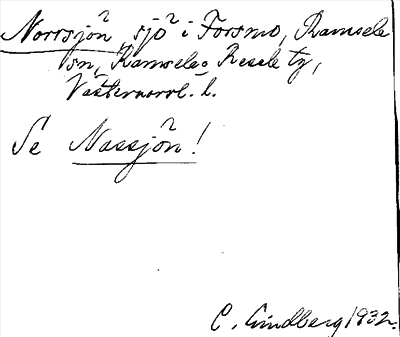 Norrsjön, sjö i Forsmo, Ramsele
sn, Ramsele o Resele tg,
Västernorrl. l.
Se Nässjön!
C. Lindberg 1932.